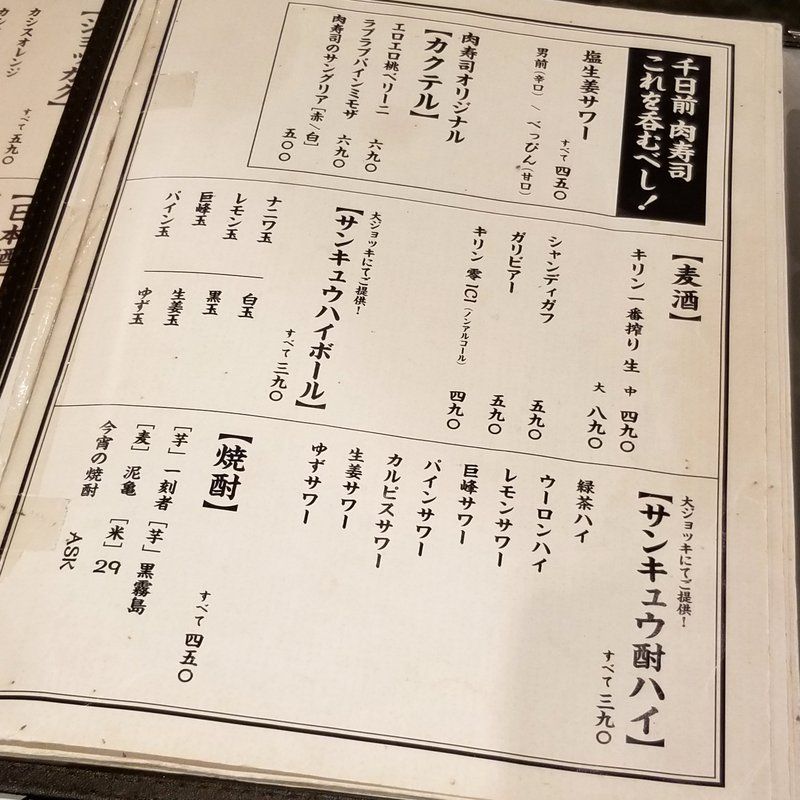 千日前 肉寿司
これを呑むべし！
塩生姜サワー
すべて 四五〇
男前(辛口) / べっぴん(甘口)
肉寿司オリジナル
【カクテル】
エロエロ桃ベリーニ 六九〇
ラブラブパインミモザ 六九〇
肉寿司のサングリア[赤/白] 五〇〇
【麦酒】
キリン一番搾り 生 中 四九〇
大 八九〇
シャンディガフ 五九〇
ガリビアー 五九〇
キリン 零ICI(ノンアルコール) 四九〇
大ジョッキにてご提供！
【サンキュウハイボール】
すべて 三九〇
ナニワ玉
レモン玉
巨峰玉
パイン玉
白玉
黒玉
生姜玉
ゆず玉
大ジョッキにてご提供！
【サンキュウ酎ハイ】
すべて 三九〇
緑茶ハイ
ウーロンハイ
レモンサワー
巨峰サワー
パインサワー
カルピスサワー
生姜サワー
ゆずサワー
【焼酎】
すべて 四五〇
[芋] 一刻者 [芋] 黒霧島
[麦] 泥亀 [米] 29
今宵の焼酎 ASK
カシスオレンジ
すべて 五九〇
【日本酒】